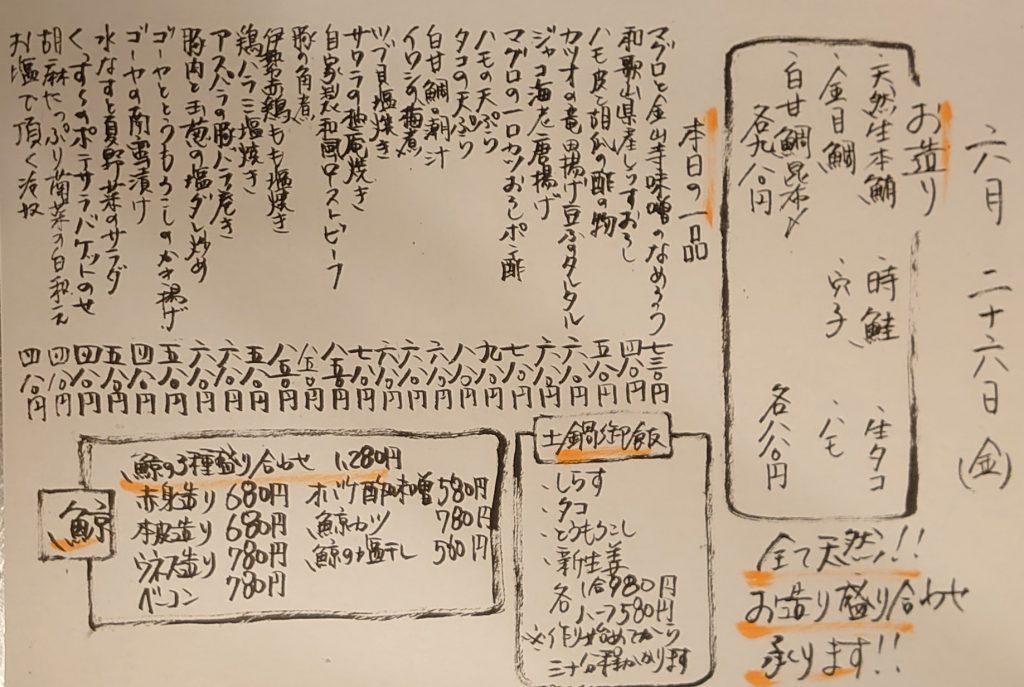 六月 二十六日 (金)
お造り
天然生本鮪 時鮭 生タコ
金目鯛 穴子 ハモ
白甘鯛昆布〆
各九八〇円 各八八〇円
全て天然!!
お造り盛り合わせ
承ります!!
本日の一品
マグロと金山寺味噌のなめろう 七三〇円
和歌山県産しらすおろし 四八〇円
ハモ皮と胡瓜の酢の物 五八〇円
カツオの竜田揚げ豆ふのタルタル 六八〇円
ジャコ海老唐揚げ 六八〇円
マグロの一口カツおろしポン酢 七八〇円
ハモの天ぷら 九八〇円
タコの天ぷら 八八〇円
白甘鯛の潮汁 六八〇円
イワシの梅煮 六八〇円
ツブ貝塩焼き 六八〇円
サワラの柚庵焼き 七八〇円
自家製和風ローストビーフ 八五〇円
豚の角煮 八五〇円
伊勢赤鶏もも塩焼き 八五〇円
鶏ハラミ塩焼き 五八〇円
アスパラの豚バラ巻き 六八〇円
豚肉と玉葱の塩ダレ炒め 六八〇円
ゴーヤととうもろこしのかき揚げ 五八〇円
ゴーヤの南蛮漬け 四八〇円
水なすと夏野菜のサラダ 五八〇円
のポテサラバケットのせ 四八〇円
胡麻たっぷり菊菜の白和え 四八〇円
お塩で頂く冷奴 四八〇円
土鍋御飯
・しらす
・タコ
・とうもろこし
・新生姜
各 1合980円
ハーフ580円
※作り始めてから
三十分程かかります
鯨
鯨の3種盛り合わせ 1,280円
赤身造り 680円
本皮造り 680円
ウネス造り 780円
ベーコン 780円
オバケ酢味噌 580円
鯨カツ 780円
鯨の塩干し 560円